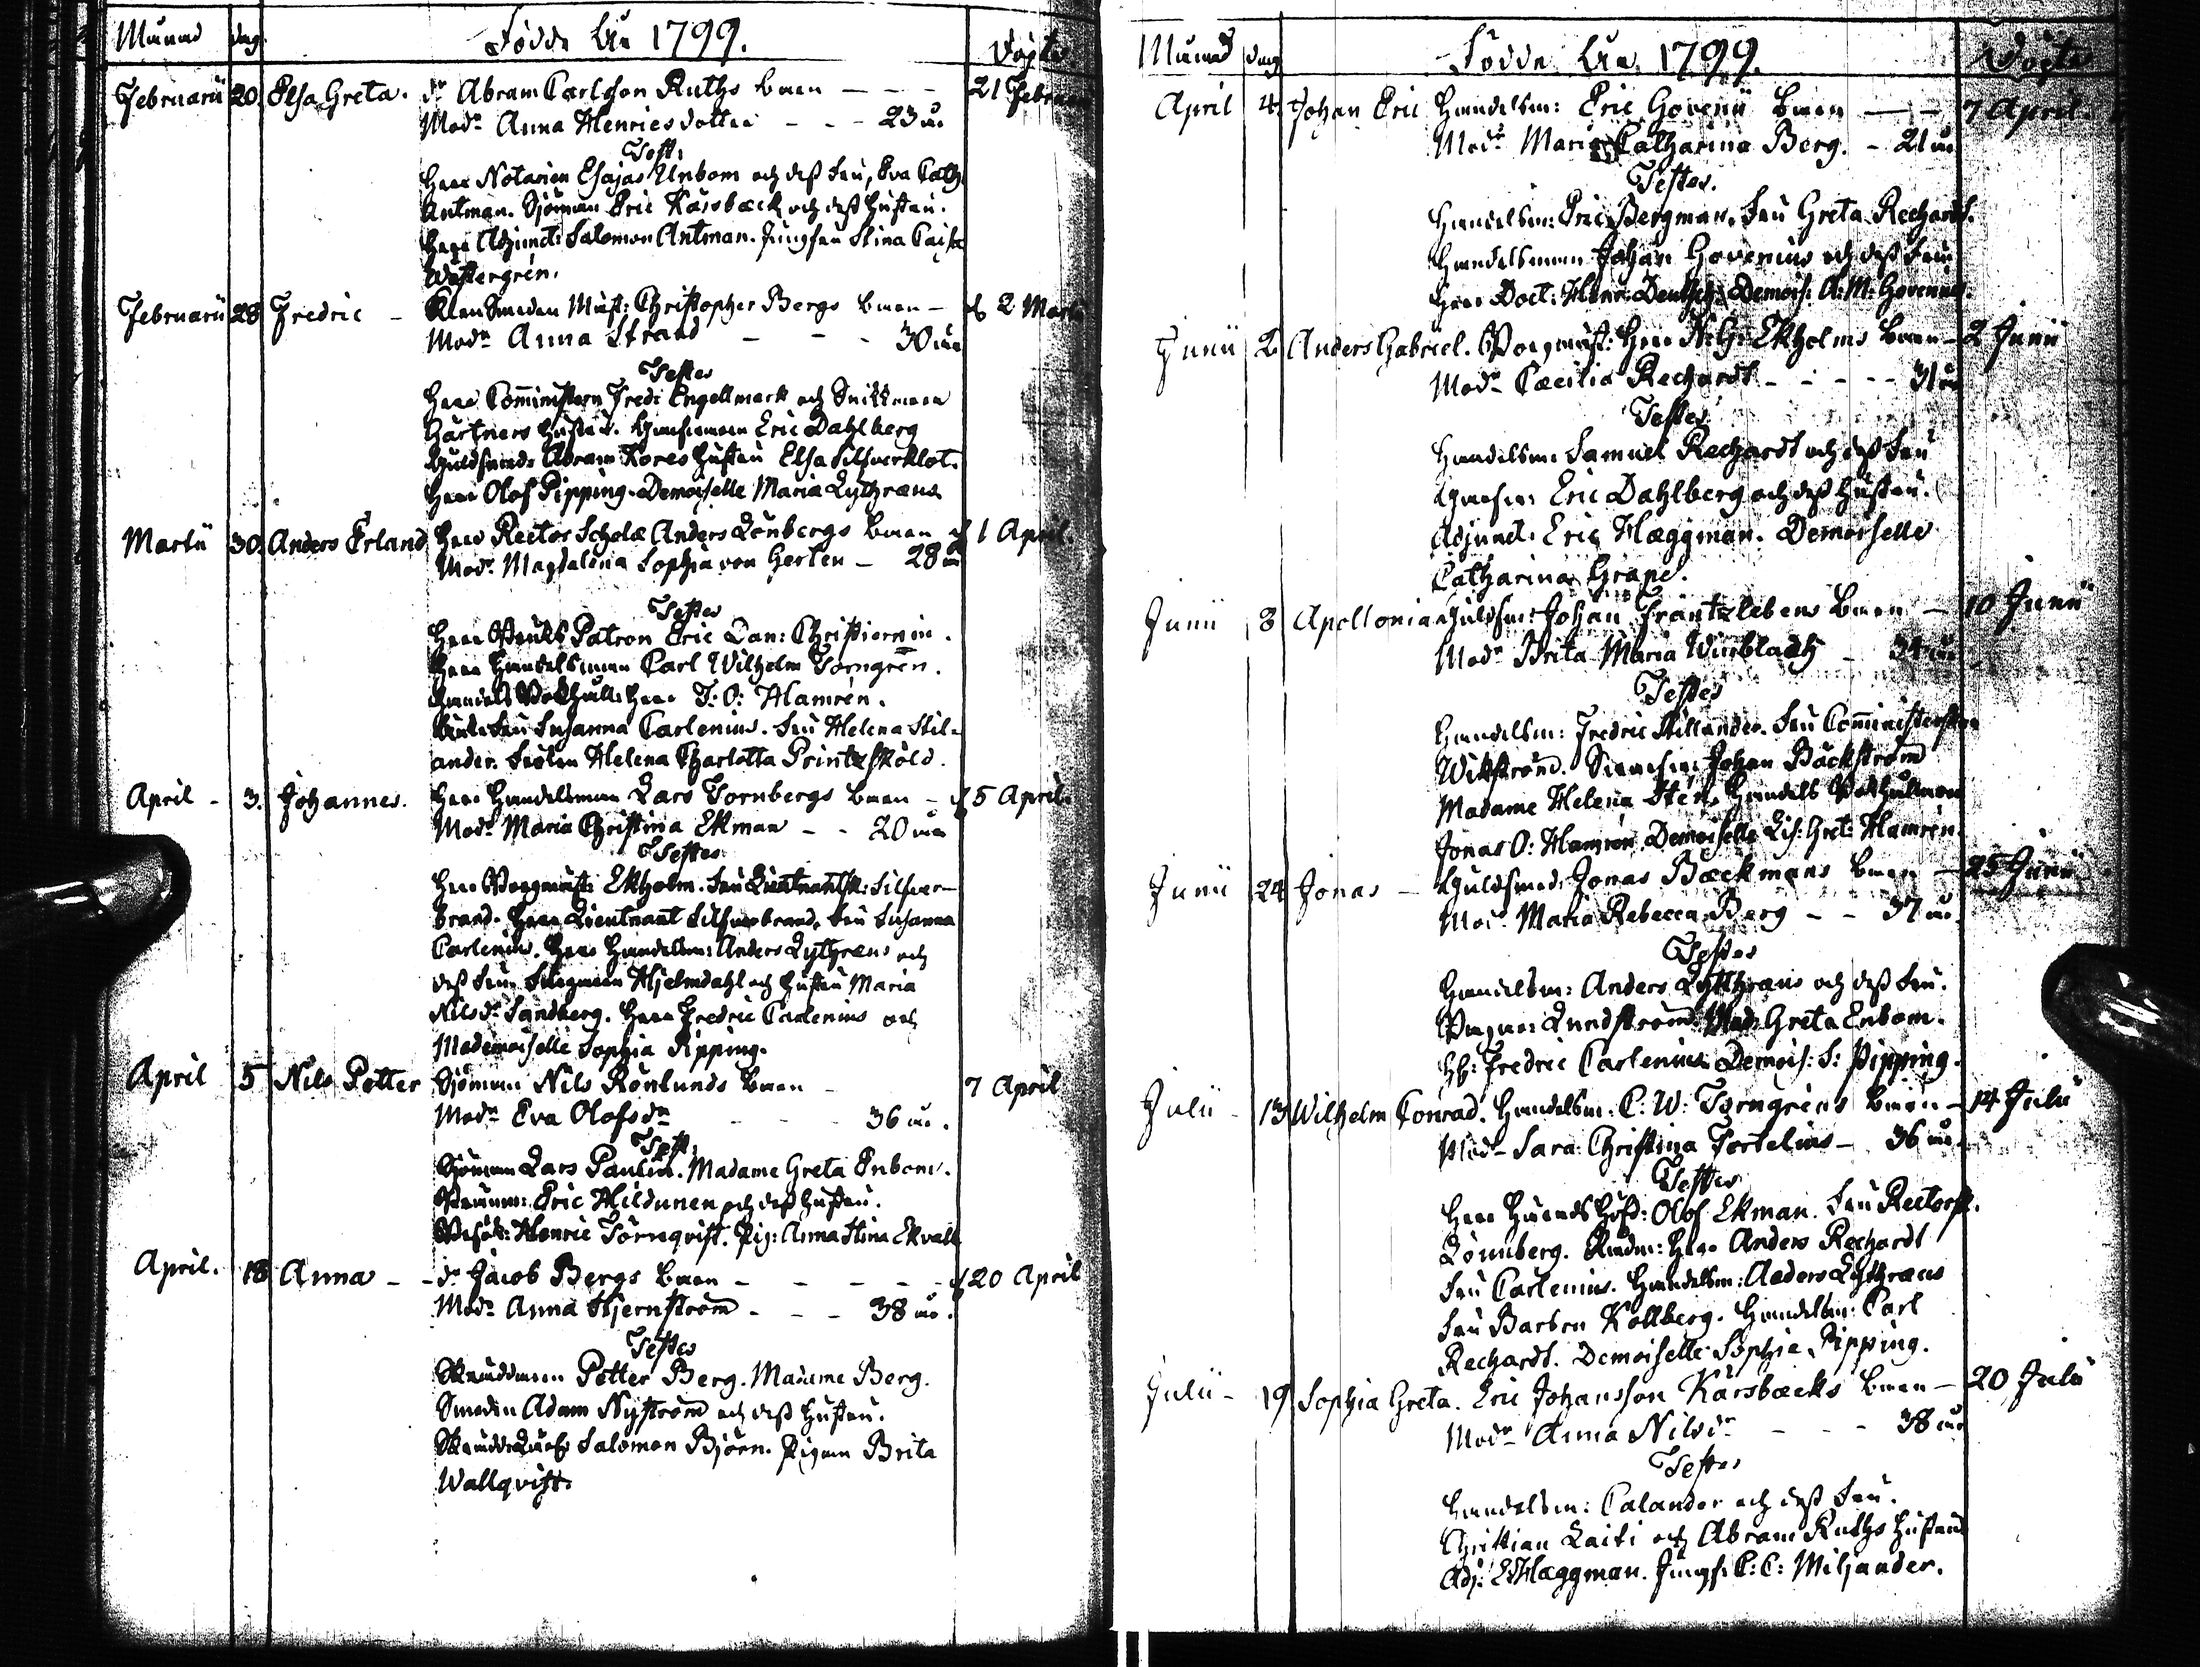 Månad dag Födde År 1799. Döpte
Februarii 20. Elsa Greta. dn Abram Carlsson Ruths barn - - - 21 Februarii
Modn Anna Henricsdotter - - - 23 år
Test:
Herr Notarien Esajas Unbom och dess Fru, Eva Cath:
Antman. Sjöman Eric Kårsbäck och dess hustru.
Herr Adjunct: Salomon Antman. Jungfru Stina Caisa
Westergrén.
Februarii 28 Fredric - Klensmeden Mäst: Christopher Bergs barn - 2 Martii
Modn Anna Strand - - - 30 år
Testes
Herr Comministern Fredr: Engellmark och Snickaren
Gärtners hustru. Garfvaren Eric Dahlberg
Guldsmeds Abram Kores hustru Elsa Silfverklot.
Herr Olof Pipping. Demoiselle Maria Lythræus
Martii 30. Anders Erland Herr Rector Scholæ Anders Lönbergs barn 1 April.
Modn Magdalena Sophia von Gerten - 28 år
Testes
Herr Bruks Patron Eric Dan: Christiernin.
Herr Handelsman Carl Wilhelm Torngrén.
Handels Bokhåll: Herr J: O: Hamrén.
Fru Susanna Carlenius. Fru Helena Stil-
ander. Fröken Helena Charlotta Printzsköld.
April - 3. Johannes. Herr Handelsman Lars Tornbergs barn - 5 April.
Modn Maria Christina Ekman - - 20 år
Testes
Herr Borgmäst: Ekholm. Fru Lieutnantsk: Silfver-
brand. Herr Lieutnant Silfverbrand. Fru Susanna
Carlenius. Herr Handelsm: Anders Lythræus och
dess Fru. Färgaren Hjelmdahl och hustru Maria
Nilsdr Sandberg. Herr Fredric Carlenius och
Mademoiselle Sophia Pipping.
April 5 Nils Petter Sjöman Nils Rönlunds barn - 7 April
Modn Eva Olofsdr - - - 36 år.
Test:
Sjöman Lars Paulin. Madame Greta Enbom.
Eric Hildunen och dess hustru.
Henric Törnqvist. Pig: Anna Stina Ekvall
April. 18 Anna - - dn Jacob Bergs barn - - - - - 20 April
Modn Anna Stjernström - - - 38 år.
Testes
Skräddaren Petter Berg. Madame Berg.
Smeden Adam Nyström och dess hustru.
Salomon Björn. Pigan Brita
Wallqvist.
Månad dag Födde År 1799. Döpte
April 4. Johan Eric Handelsm: Eric Govenii barn - - 7 April.
Modr Maria Catharina Berg. - 21 år
Testes.
Handelsm: Eric Bergman. Fru Greta Rechardt.
Handelsman Johan Govenius och dess Fru
Herr Doct: Henr: Deutsch. Demois: A: M: Govenius.
Junii 2. Anders Gabriel. Borgmäst: Herr N: G: Ekholms barn - 2 Junii
Modn Cæcilia Rechardt - - - - 31 år
Testes
Handelsm: Samuel Rechardt och dess Fru
Garfv: Eric Dahlberg och dess hustru.
Adjunct: Eric Hæggman. Demoiselle
Catharina Grape.
Junii 8 Apollonia Guldsm: Johan Frantzlebens barn - 10 Junii
Modn Brita Maria Wurbladh - 34 år
Testes
Handelsm: Fredric Stillander. Fru Comministerskan
Wikström. Johan Bäckström
Madame Helena Stén. Handels Bokhållaren
Jonas O: Hamrén. Demoiselle Lis: Gret: Hamrén.
Junii 24 Jonas - Guldsmed: Jonas Bæckmans barn - 25 Junii
Modr Maria Rebecca Berg - - 37 år.
Testes
Handelsm: Anders Lythræus och dess Fru.
Lundström. Mad: Greta Enbom.
Hr: Fredric Carlenius. Demois: S: Pipping.
Julii - 13 Wilhelm Conrad. Handelsm: C: W: Torngréns barn - 14 Julii
Modr Sara Christina Fortelius - 36 år.
Testes
Herr Häradshöfd: Olof Ekman. Fru Rectorsk.
Lönnberg. Rådm: Herr Anders Rechardt
Fru Carlenius. Handelsm: Anders Lythræus
Fru Barbro Kollberg. Handelsm: Carl
Rechardt. Demoiselle Sophia Pipping.
Julii - 19. Sophia Greta. Eric Johansson Kårsbæcks barn - 20 Julii
Modn Anna Nilsdr - - - 38 år
Testes
Handelsm: Calander och dess Fru.
Christian Laiti och Abram Ruths hustru
Adj: E: Hæggman. Jungf: C: C: Miljander.